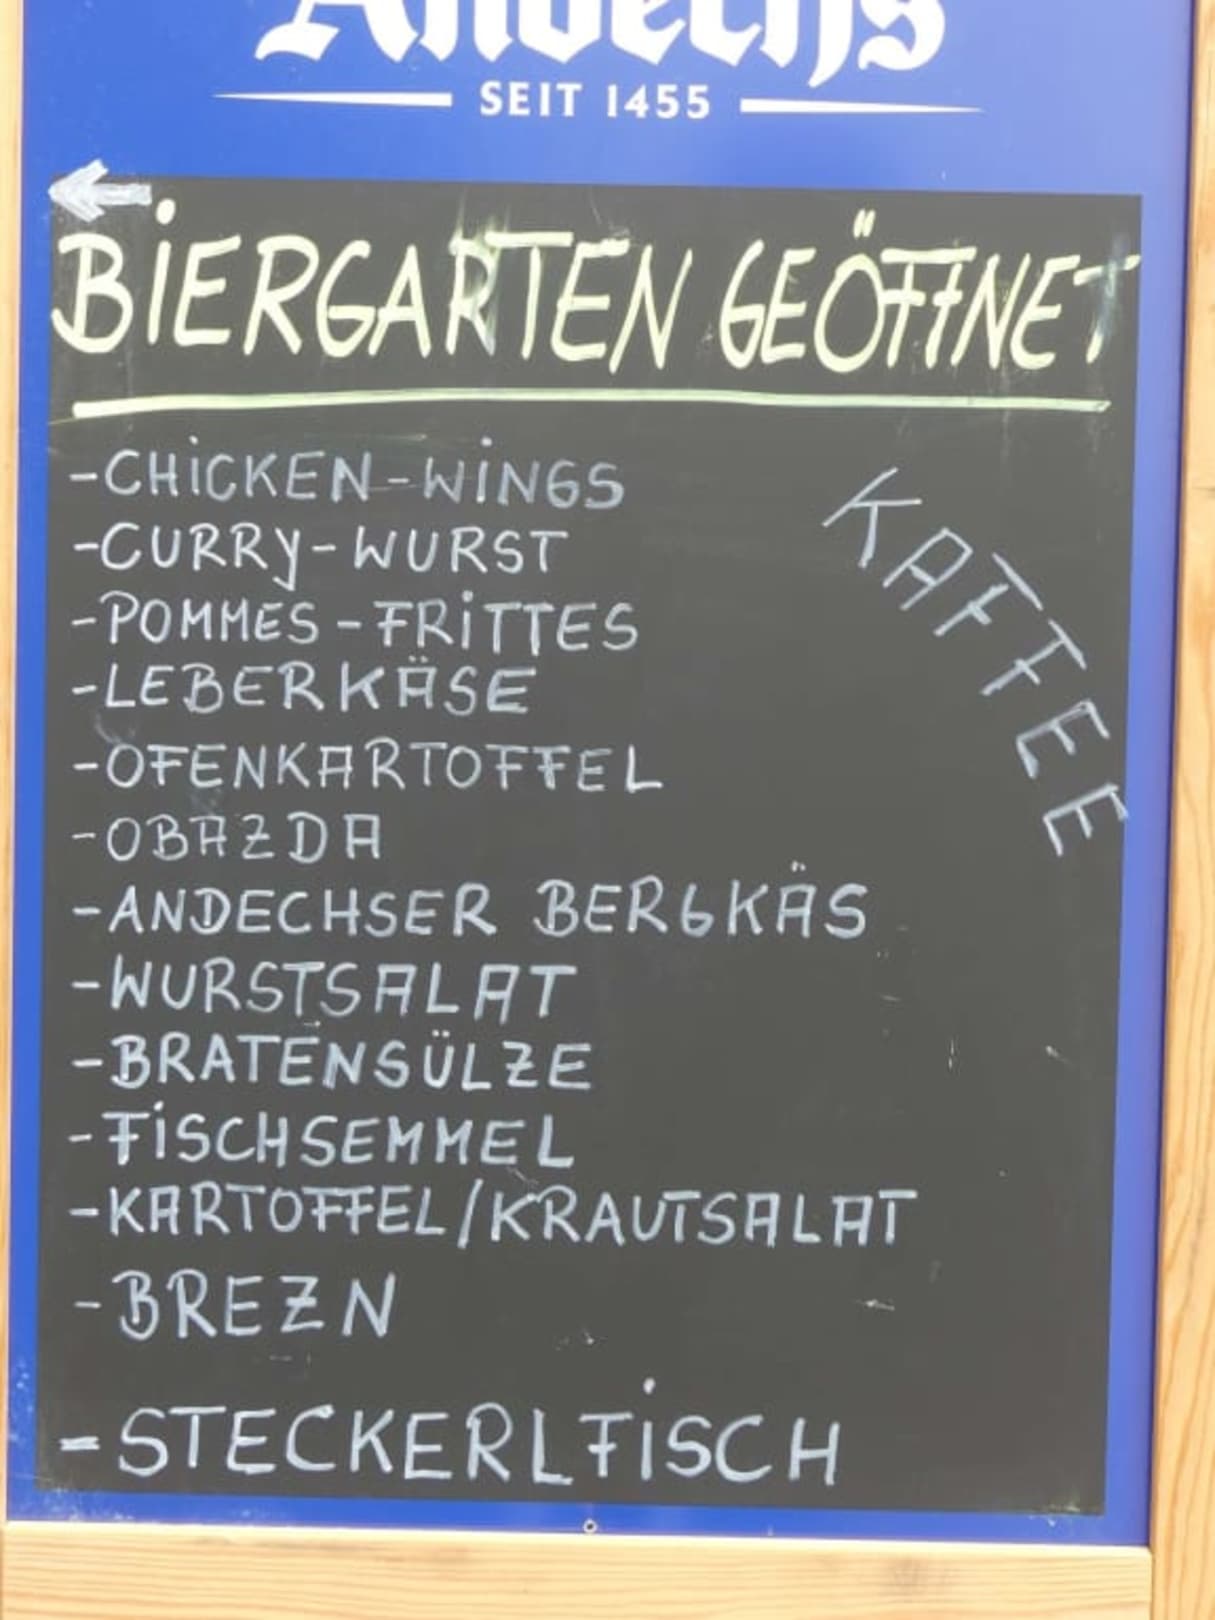 Andechs
SEIT 1455
BiERGARTEN GEÖFFNET
-CHiCKEN-WiNGS
-CURRy-WURST
-POMMES-FRiTTES
-LEBERKÄSE
-OFENKARTOFFEL
-OBAZDA
-ANDECHSER BERGKÄS
-WURSTSALAT
-BRATENSÜLZE
-FiSCHSEMMEL
-KARTOFFEL/KRAUTSALAT
-BREZN
-STECKERLFiSCH
KAFFEE